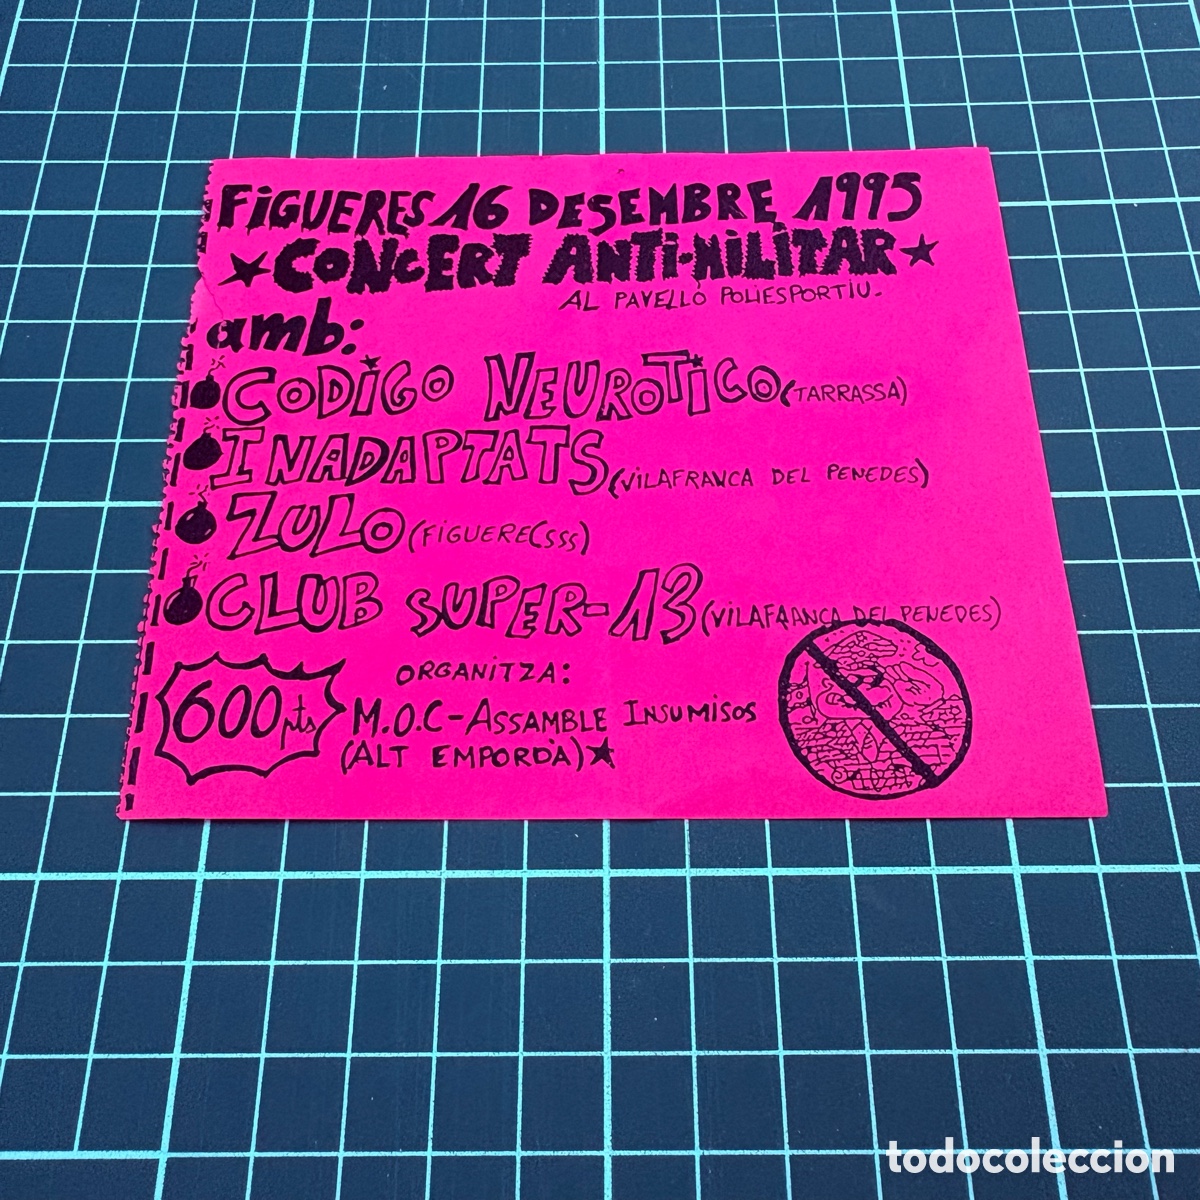 FiGUERES 16 DESEMBRE 1995
★CONCERT ANTI-MILITAR★
AL PAVELLÓ POLIESPORTIU.
amb:
CODIGO NEUROTICO (TARRASSA)
INADAPTATS (VILAFRANCA DEL PENEDES)
ZULO (FIGUERE(SSS)
CLUB SUPER-13 (VILAFRANCA DEL PENEDES)
600 pts
ORGANITZA:
M.O.C-ASSAMBLE INSUMISOS
(ALT EMPORDÀ)★
todocoleccion